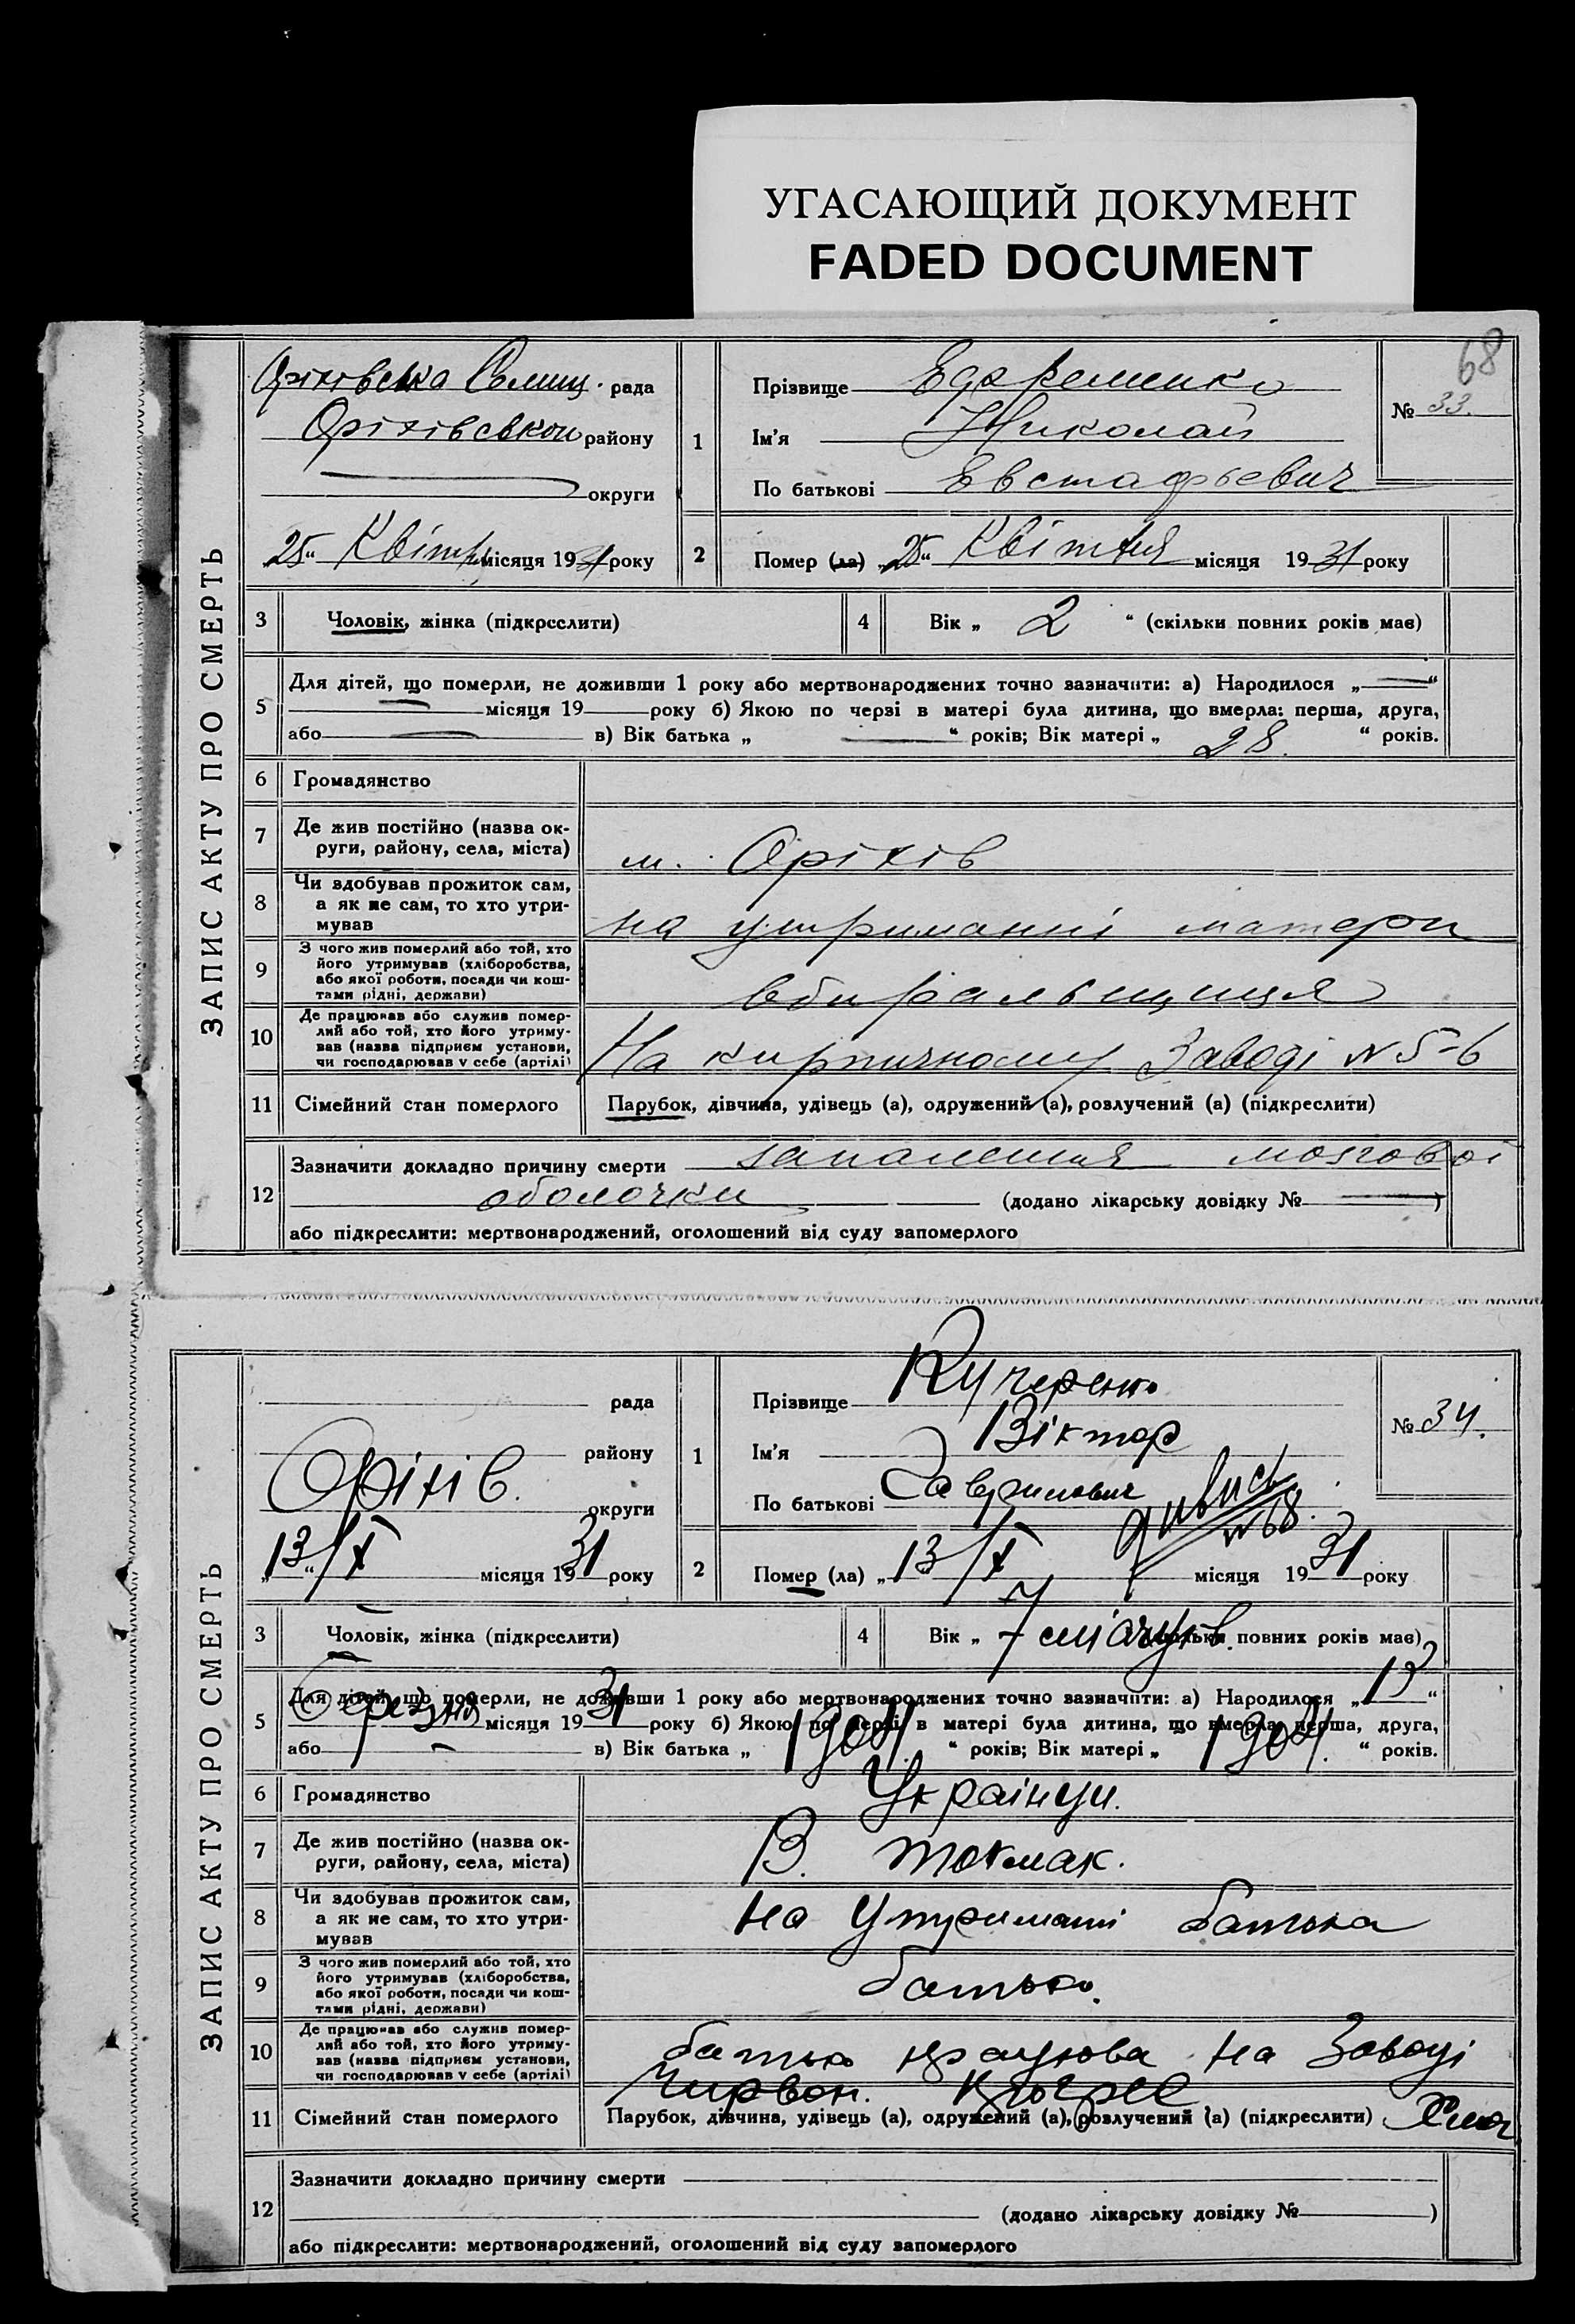 УГАСАЮЩИЙ ДОКУМЕНТ
FADED DOCUMENT
68
ЗАПИС АКТУ ПРО СМЕРТЬ
Оріхівська Селищ. рада
Оріхівськои району
округи
„25“ Квітня місяця 1931 року
1
Прізвище Ефременко
Ім’я Николай
По батькові Евстафьевич
№ 33.
2
Помер (ла) „25“ Квітня місяця 1931 року
3 Чоловік, жінка (підкреслити)
4 Вік „ 2 “ (скільки повних років має)
5 Для дітей, що померли, не доживши 1 року або мертвонароджених точно зазначити: а) Народилося „ — “
— місяця 19 року б) Якою по черзі в матері була дитина, що вмерла: перша, друга,
або — в) Вік батька „ — “ років; Вік матері „ 28. “ років.
6 Громадянство
7 Де жив постійно (назва ок-
руги, району, села, міста)
м. Оріхів
8 Чи здобував прожиток сам,
а як не сам, то хто утри-
мував
на утриманні матери
9 З чого жив померлий або той, хто
його утримував (хліборобства,
або якої роботи, посади чи кош-
тами рідні, держави)
вбиральщиця
10 Де працював або служив помер-
лий або той, хто його утриму-
вав (назва підприєм установи,
чи господарював у себе (артілі)
На кирпичному Заводі № 5-6
11 Сімейний стан померлого
Парубок, дівчина, удівець (а), одружений (а), розлучений (а) (підкреслити)
12 Зазначити докладно причину смерти запалення мозговоі
оболочки (додано лікарську довідку № — )
або підкреслити: мертвонароджений, оголошений від суду запомерлого
ЗАПИС АКТУ ПРО СМЕРТЬ
рада
району
Оріхів. округи
„13“/X місяця 1931 року
1
Прізвище Кучеренко
Ім’я Віктор
По батькові Гаврилович
№ 34.
дивись
№ 68.
2
Помер (ла) „13/X місяця 1931 року
3 Чоловік, жінка (підкреслити)
4 Вік „ 7 місяців. скільки повних років має)
5 Для дітей, що померли, не доживши 1 року або мертвонароджених точно зазначити: а) Народилося „13“
Березня місяця 1931 року б) Якою по черзі в матері була дитина, що вмерла: перша, друга,
або — в) Вік батька „ 1904. “ років; Вік матері „ 1904. “ років.
6 Громадянство
Українци.
7 Де жив постійно (назва ок-
руги, району, села, міста)
В. Токмак.
8 Чи здобував прожиток сам,
а як не сам, то хто утри-
мував
на утриманні батька
9 З чого жив померлий або той, хто
його утримував (хліборобства,
або якої роботи, посади чи кош-
тами рідні, держави)
батько.
10 Де працював або служив помер-
лий або той, хто його утриму-
вав (назва підприєм установи,
чи господарював у себе (артілі)
батько працюва на Заводі
Червон.
11 Сімейний стан померлого
Парубок, дівчина, удівець (а), одружений (а), розлучений (а) (підкреслити)
12 Зазначити докладно причину смерти
(додано лікарську довідку № )
або підкреслити: мертвонароджений, оголошений від суду запомерлого